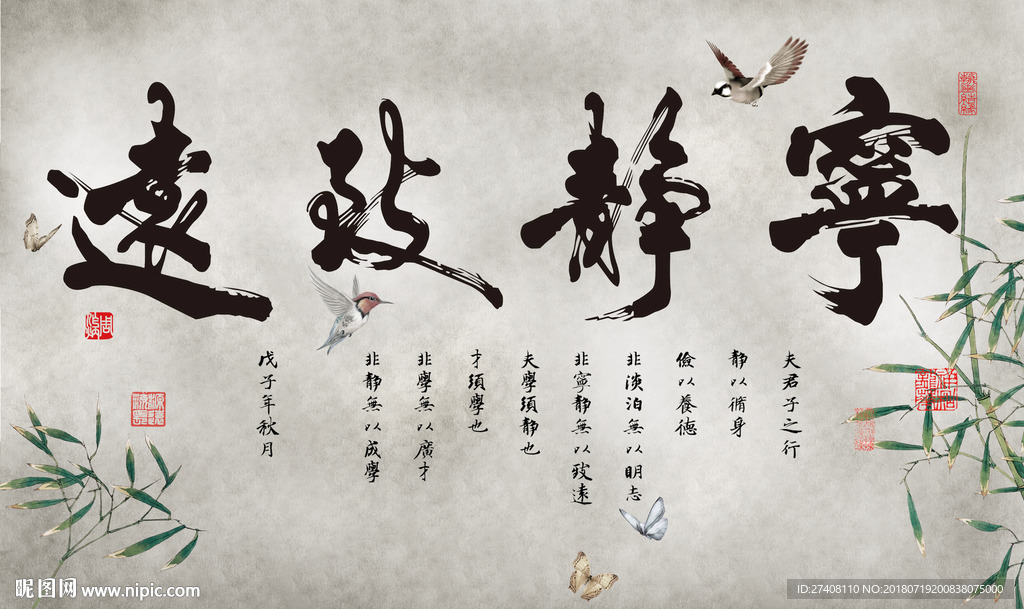 寧靜致遠
夫君子之行
靜以脩身
儉以養德
非淡泊無以明志
非寧靜無以致遠
夫學須靜也
才須學也
非學無以廣才
非靜無以成學
戊子年秋月
昵图网 www.nipic.com
ID:27408110 NO:20180719200838075000